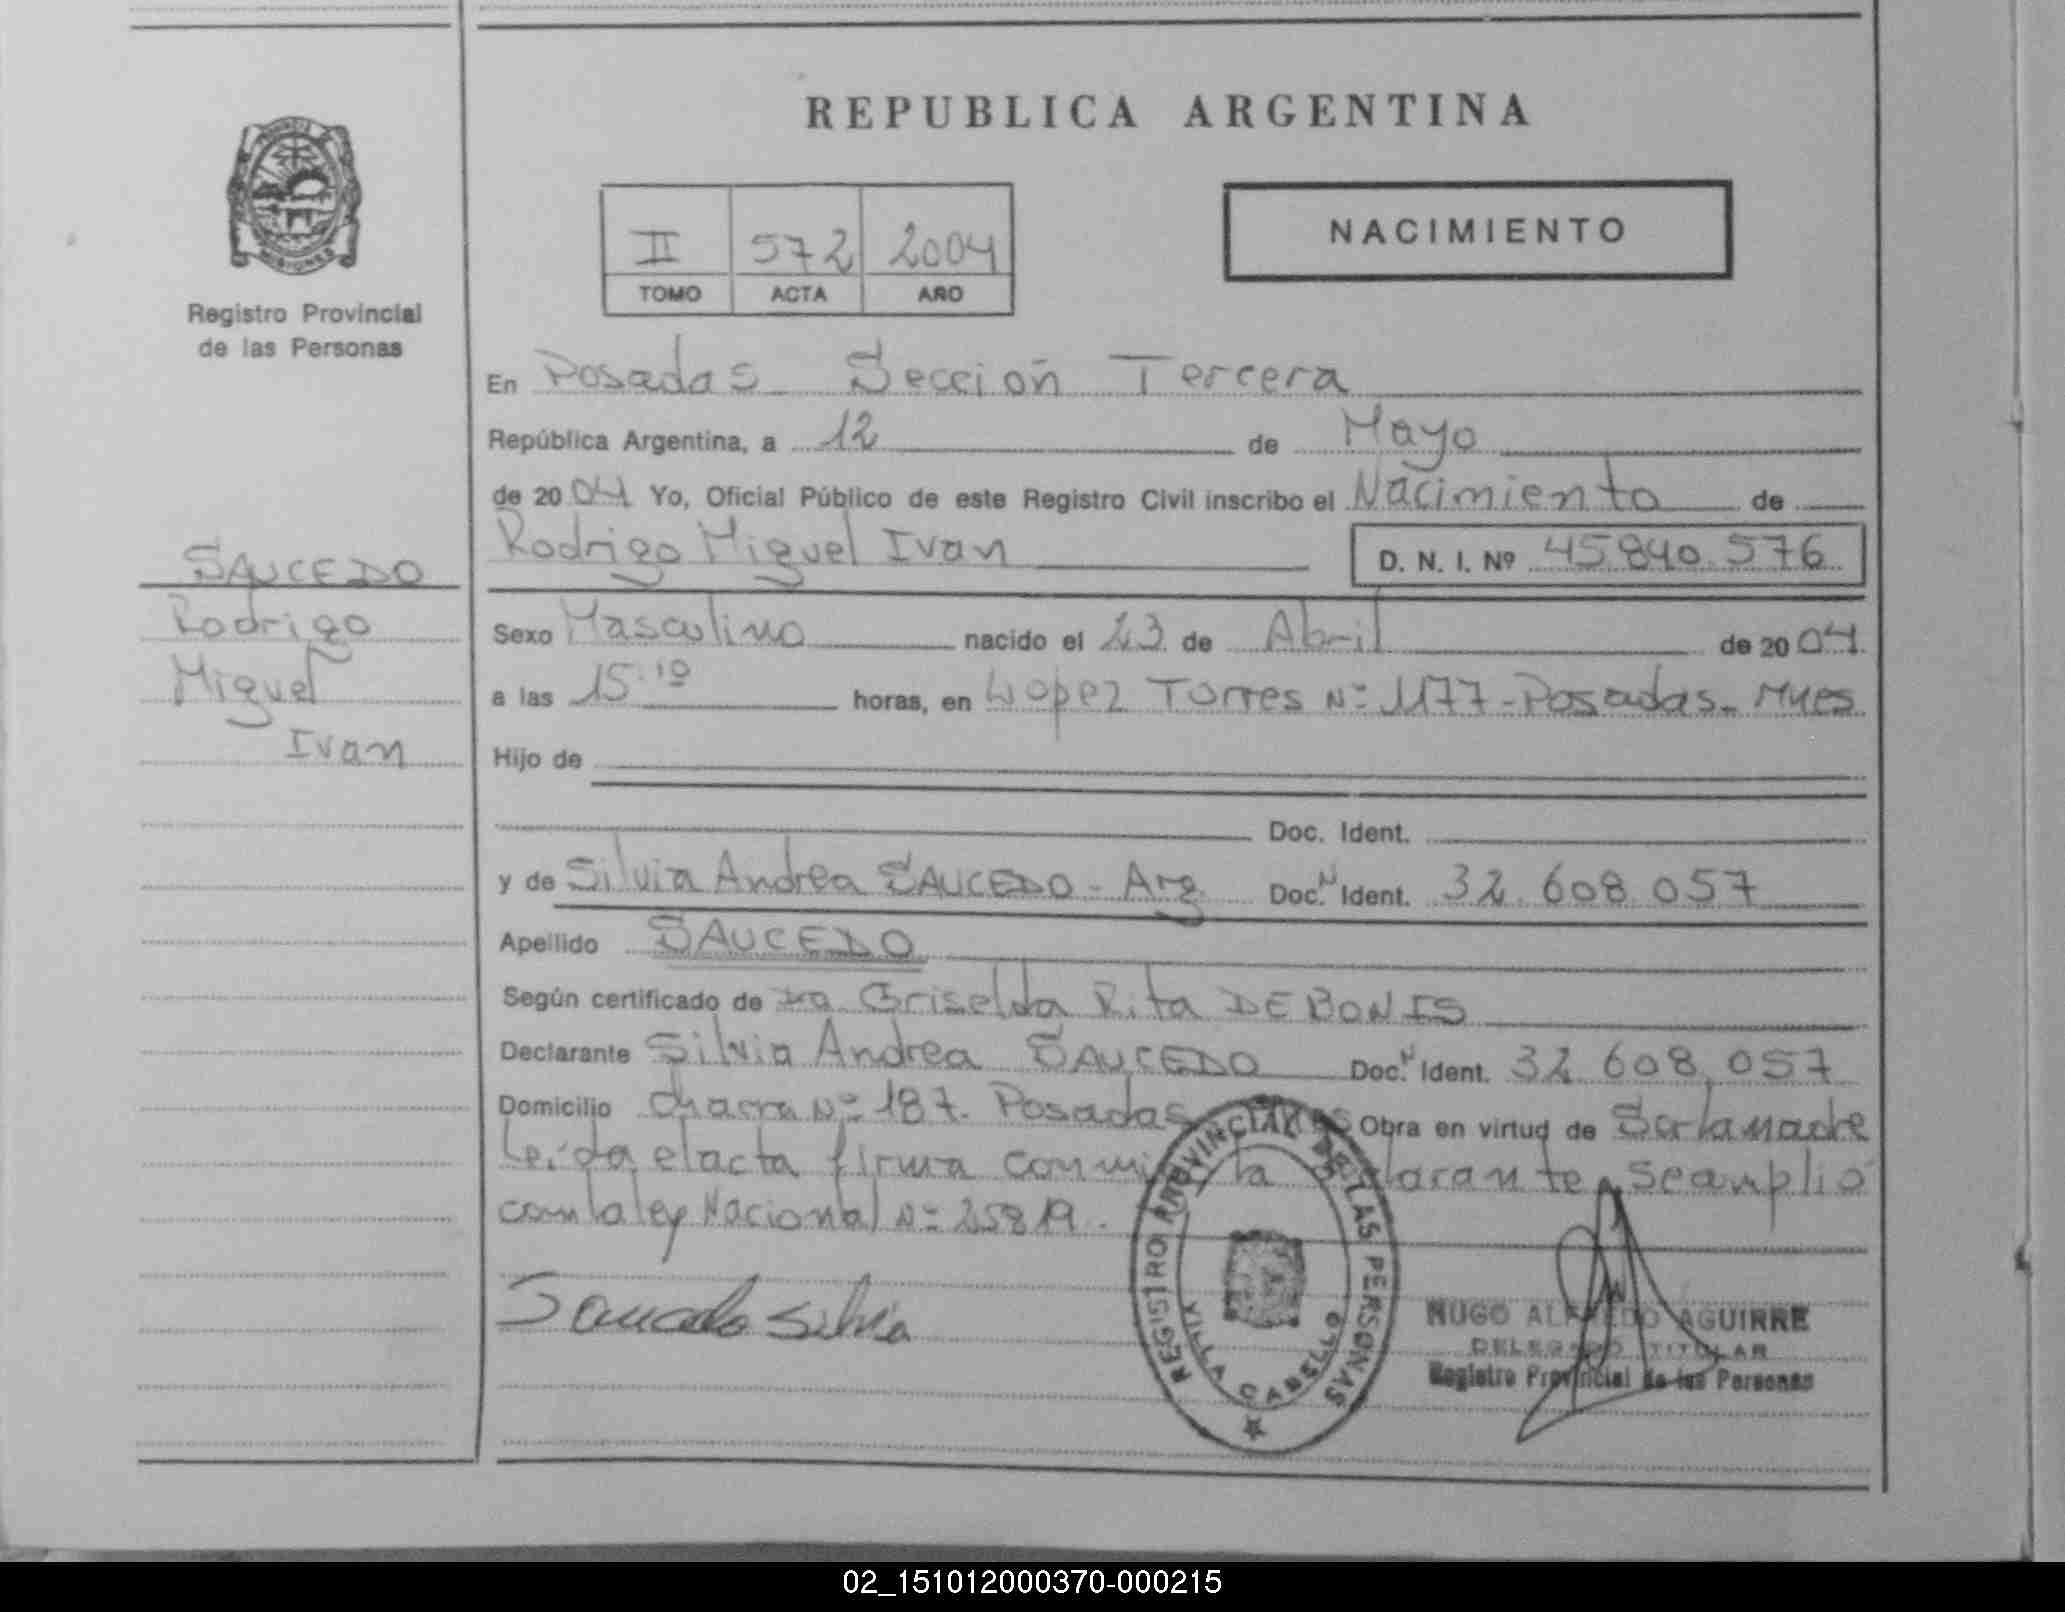 REPUBLICA ARGENTINA
PROVINCIA DE MISIONES
Registro Provincial
de las Personas
II 572 2004
TOMO ACTA AÑO
NACIMIENTO
En Posadas Sección Tercera
República Argentina, a 12 de Mayo
de 2004 Yo, Oficial Público de este Registro Civil inscribo el Nacimiento de
Rodrigo Miguel Ivan D. N. I. Nº 45.840.576
SAUCEDO
Rodrigo
Miguel
Ivan
Sexo Masculino nacido el 23 de Abril de 2004
a las 15:10 horas, en Lopez Torres Nº 1177-Posadas-Mnes
Hijo de
Doc. Ident.
y de Silvia Andrea SAUCEDO - Arg. Doc. N Ident. 32.608.057
Apellido SAUCEDO
Según certificado de Dra Griselda Rita DE BONIS
Declarante Silvia Andrea SAUCEDO Doc. N Ident. 32.608.057
Domicilio chacra Nº 187. Posadas Obra en virtud de Ser la madre
Leída el acta firma conmigo la declarante se amplió
con la ley Nacional Nº 25819.
Saucedo Silvia
REGISTRO PROVINCIAL DE LAS PERSONAS
VILLA CABELLO
HUGO ALFREDO AGUIRRE
DELEGADO TITULAR
Registro Provincial de las Personas
02_151012000370-000215